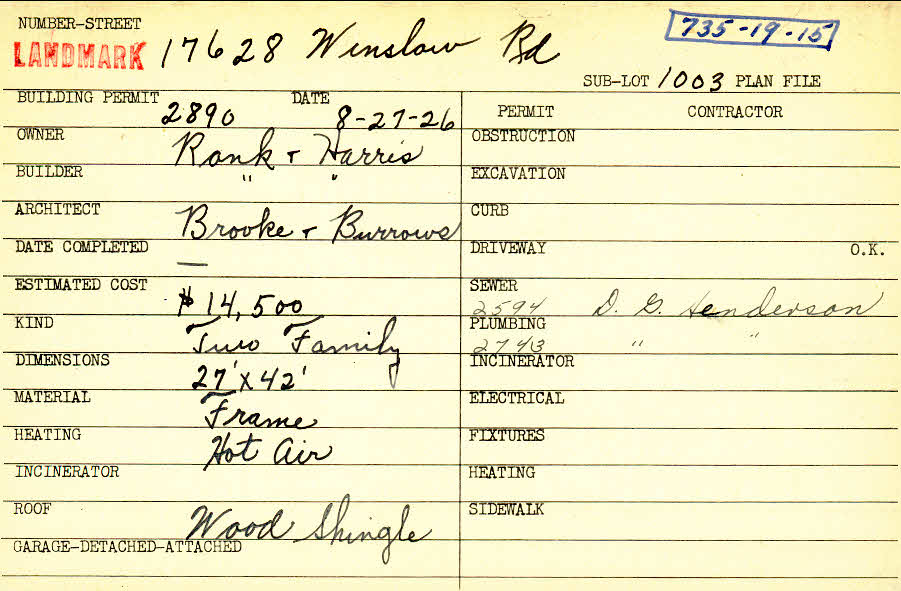 NUMBER-STREET
LANDMARK 17628 Winslow Rd
735-19-15
SUB-LOT 1003 PLAN FILE
BUILDING PERMIT 2890 DATE 8-27-26
PERMIT CONTRACTOR
OWNER Ronk + Harris
OBSTRUCTION
BUILDER " "
EXCAVATION
ARCHITECT Brooke + Burrows
CURB
DATE COMPLETED —
DRIVEWAY O.K.
ESTIMATED COST $14,500
SEWER 2594 D. G. Henderson
KIND Two Family
PLUMBING 2743 " "
DIMENSIONS 27' x 42'
INCINERATOR
MATERIAL Frame
ELECTRICAL
HEATING Hot Air
FIXTURES
INCINERATOR
HEATING
ROOF Wood Shingle
SIDEWALK
GARAGE-DETACHED-ATTACHED